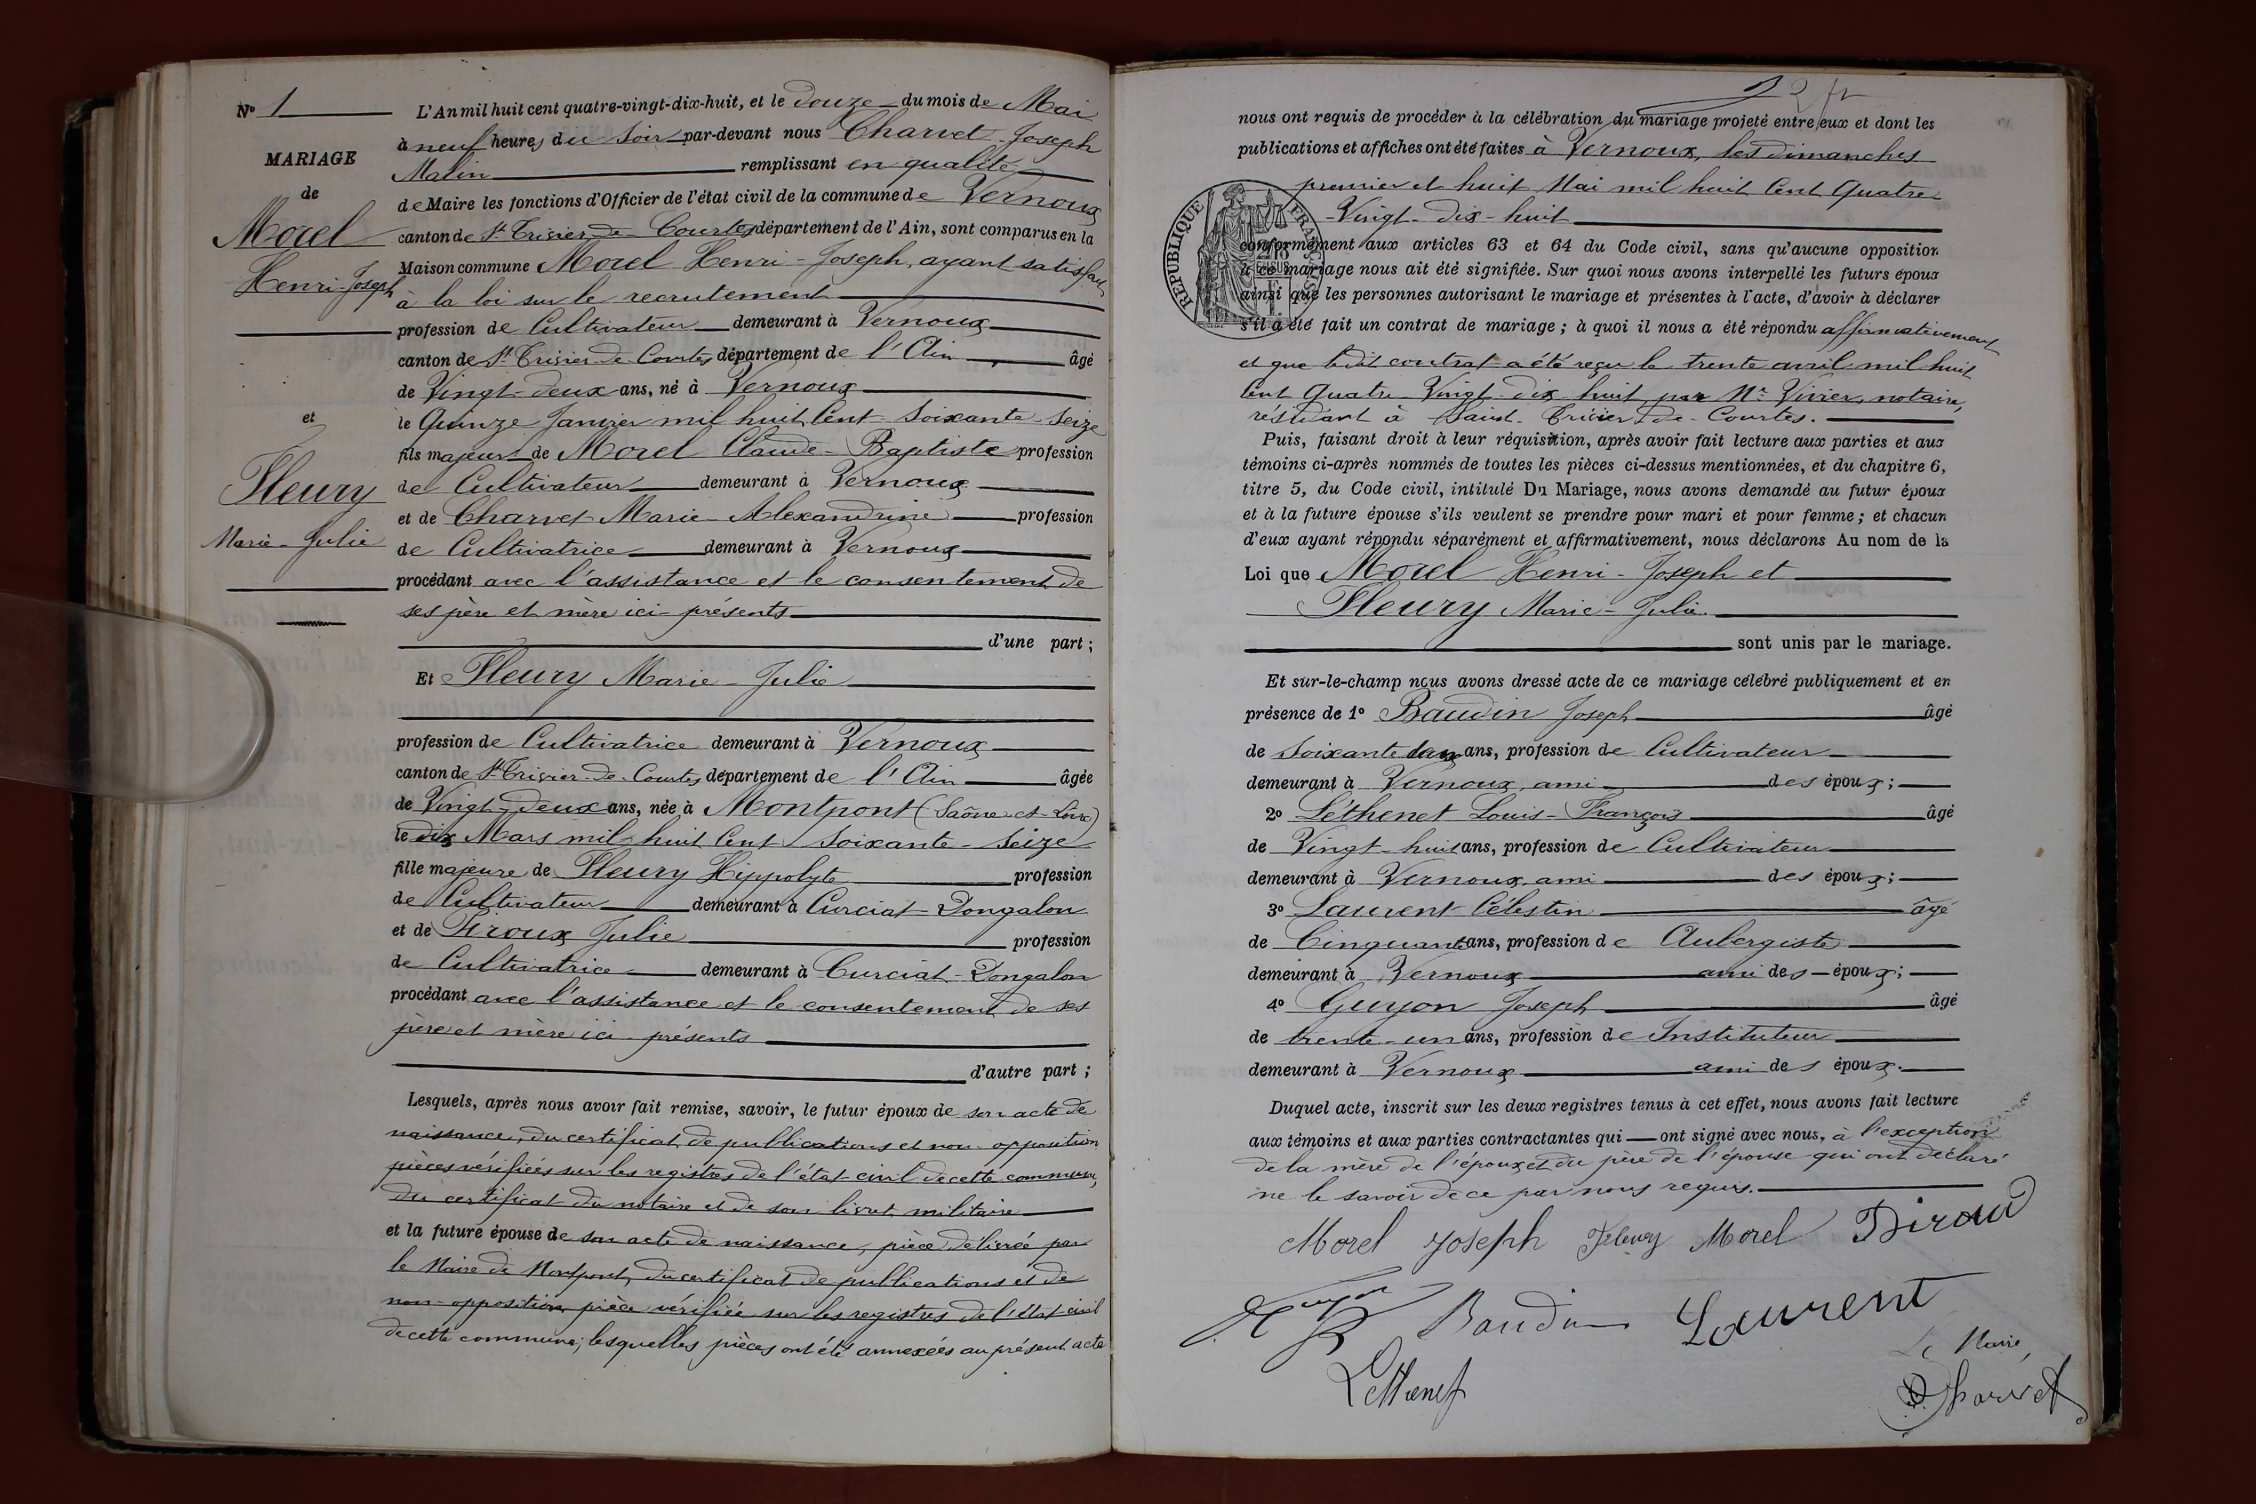 N° 1
MARIAGE
de
Morel
Henri-Joseph
et
Fleury
Marie-Julie
L'An mil huit cent quatre-vingt-dix-huit, et le douze du mois de Mai
à neuf heures du soir par-devant nous Charvet Joseph
Malin remplissant en qualité
de Maire les fonctions d'Officier de l'état civil de la commune de Vernoux
canton de St Trivier-de-Courtes département de l'Ain, sont comparus en la
Maison commune Morel Henri-Joseph, ayant satisfait
à la loi sur le recrutement
profession de Cultivateur demeurant à Vernoux
canton de St Trivier-de-Courtes département de l'Ain âgé
de Vingt-deux ans, né à Vernoux
le Quinze Janvier mil huit Cent Soixante-Seize
fils majeur de Morel Claude-Baptiste profession
de Cultivateur demeurant à Vernoux
et de Charvet Marie-Alexandrine profession
de Cultivatrice demeurant à Vernoux
procédant avec l'assistance et le consentement de
ses père et mère ici présents
d'une part;
Et Fleury Marie-Julie
profession de Cultivatrice demeurant à Vernoux
canton de St Trivier-de-Courtes département de l'Ain âgée
de Vingt-deux ans, née à Montpont (Saône-et-Loire)
le dix Mars mil huit Cent Soixante-Seize
fille majeure de Fleury Hippolyte profession
de Cultivateur demeurant à Curciat-Dongalon
et de Julie profession
de Cultivatrice demeurant à Curciat-Dongalon
procédant avec l'assistance et le consentement de ses
père et mère ici présents
d'autre part;
Lesquels, après nous avoir fait remise, savoir, le futur époux de son acte de
naissance, du certificat de publications et non opposition
pièces vérifiées sur les registres de l'état-civil de cette commune,
du certificat du notaire et de son livret militaire
et la future épouse de son acte de naissance, pièce délivrée par
le Maire de Montpont, du certificat de publications et de
non-opposition, pièce vérifiée sur les registres de l'état civil
de cette commune; lesquelles pièces ont été annexées au présent acte
nous ont requis de procéder à la célébration du mariage projeté entre eux et dont les
publications et affiches ont été faites à Vernoux, les dimanches
premier et huit Mai mil huit Cent Quatre
-Vingt-dix-huit
RÉPUBLIQUE FRANÇAISE
conformément aux articles 63 et 64 du Code civil, sans qu'aucune opposition
à ce mariage nous ait été signifiée. Sur quoi nous avons interpellé les futurs époux
ainsi que les personnes autorisant le mariage et présentes à l'acte, d'avoir à déclarer
s'il a été fait un contrat de mariage; à quoi il nous a été répondu affirmativement
et que ledit contrat a été reçu le trente avril mil huit
Cent Quatre-Vingt-dix-huit par Me Vivier, notaire,
résidant à Saint-Trivier-de-Courtes.
Puis, faisant droit à leur réquisition, après avoir fait lecture aux parties et aux
témoins ci-après nommés de toutes les pièces ci-dessus mentionnées, et du chapitre 6,
titre 5, du Code civil, intitulé Du Mariage, nous avons demandé au futur époux
et à la future épouse s'ils veulent se prendre pour mari et pour femme; et chacun
d'eux ayant répondu séparément et affirmativement, nous déclarons Au nom de la
Loi que Morel Henri-Joseph et
Fleury Marie-Julie
sont unis par le mariage.
Et sur-le-champ nous avons dressé acte de ce mariage célébré publiquement et en
présence de 1° Baudin Joseph âgé
de Soixante ans, profession de Cultivateur
demeurant à Vernoux, ami des époux;
2° Léthenet Louis-François âgé
de Vingt-huit ans, profession de Cultivateur
demeurant à Vernoux, ami des époux;
3° Laurent Célestin âgé
de Cinquante ans, profession de Aubergiste
demeurant à Vernoux ami des époux;
4° Guyon Joseph âgé
de trente-un ans, profession de Instituteur
demeurant à Vernoux ami des époux.
Duquel acte, inscrit sur les deux registres tenus à cet effet, nous avons fait lecture
aux témoins et aux parties contractantes qui ont signé avec nous, à l'exception
de la mère de l'époux et du père de l'épouse qui ont déclaré
ne le savoir de ce par nous requis.
Morel Joseph Fleury Morel
Guyon Baudin Laurent
Le Maire,
Lethenet Charvet